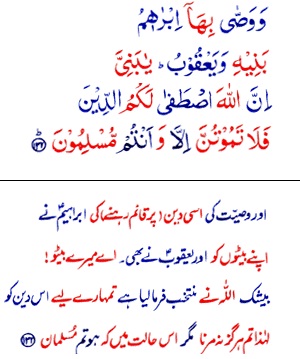 وَوَصّٰى بِهَآ اِبْرٰهٖمُ
بَنِيْهِ وَيَعْقُوْبُ ؕ يٰبَنِيَّ
اِنَّ اللّٰهَ اصْطَفٰى لَكُمُ الدِّيْنَ
فَلَا تَمُوْتُنَّ اِلَّا وَ اَنْتُمْ مُّسْلِمُوْنَ ؕ ﴿۱۳۲﴾
اور وصیت کی اسی دین (پر قائم رہنے) کی ابراہیمؑ نے
اپنے بیٹوں کو اور یعقوبؑ نے بھی۔ اے میرے بیٹو!
بیشک اللہ نے منتخب فرما لیا ہے تمہارے لیے اس دین کو
لہٰذا تم ہرگز نہ مرنا مگر اس حالت میں کہ ہو تم مُسلمان ﴿۱۳۲﴾